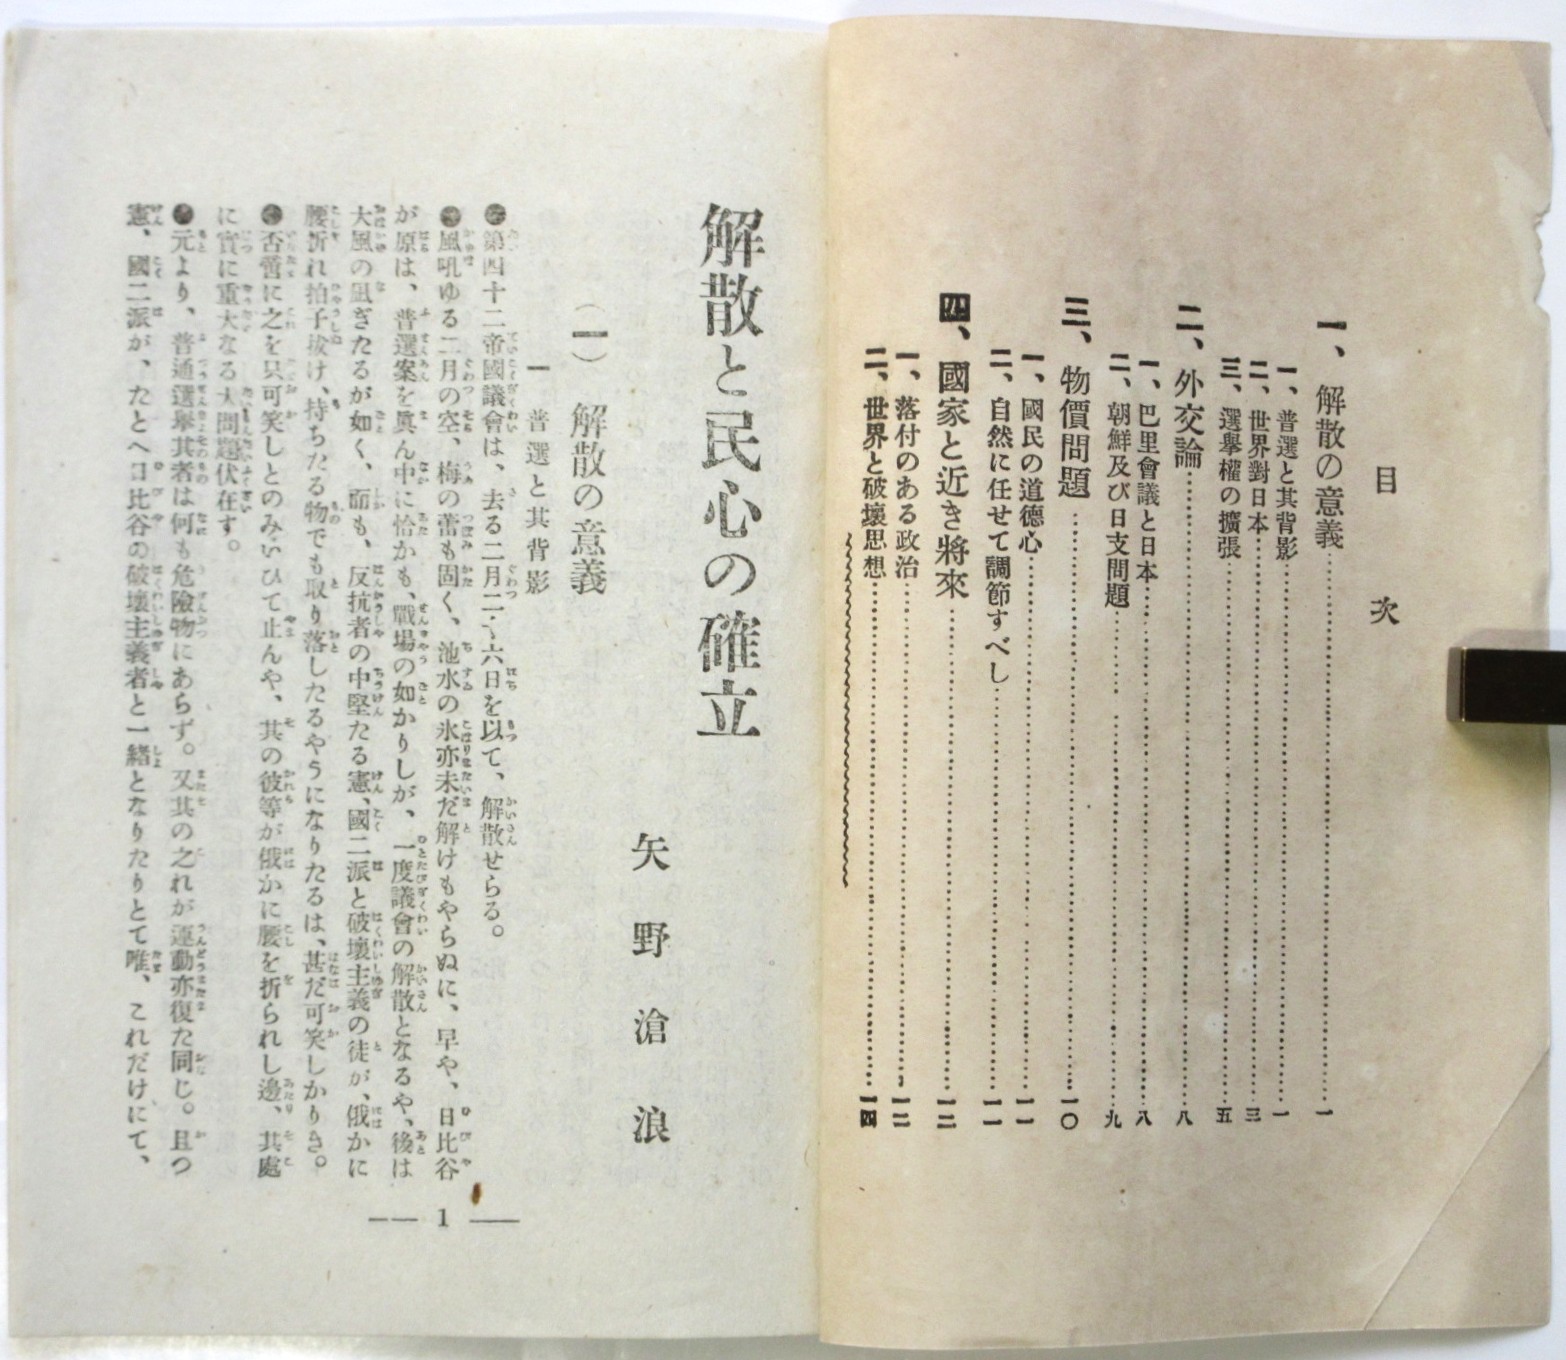 目次
一、解散の意義……一
一、普選と其背影……一
二、世界對日本……三
三、選擧權の擴張……五
二、外交論……八
一、巴里會議と日本……八
二、朝鮮及び日支問題……九
三、物價問題……一〇
一、國民の道德心……一一
二、自然に任せて調節すべし……一一
四、國家と近き將來……一二
一、落付のある政治……一二
二、世界と破壞思想……一四
解散と民心の確立
矢野滄浪
(一) 解散の意義
一 普選と其背影
●第四十二帝國議會は、去る二月二十六日を以て、解散せらる。
●風吼ゆる二月の空、梅の蕾も固く、池水の氷亦未だ解けもやらぬに、早や、日比谷
が原は、普選案を眞ん中に恰かも、戰場の如かりしが、一度議會の解散となるや、後は
大風の凪ぎたるが如く、而も、反抗者の中堅たる憲、國二派と破壞主義の徒が、俄かに
腰折れ拍子拔け、持ちたる物でも取り落したるやうになりたるは、甚だ可笑しかりき。
●否啻に之を只可笑しとのみいひて止んや、其の彼等が俄かに腰を折られし邊、其處
に實に重大なる大問題伏在す。
●元より、普通選擧其者は何も危險物にあらず。又其の之れが運動亦復た同じ。且つ
憲、國二派が、たとへ日比谷の破壞主義者と一緖となりたりとて唯、これだけにて、
— 1 —